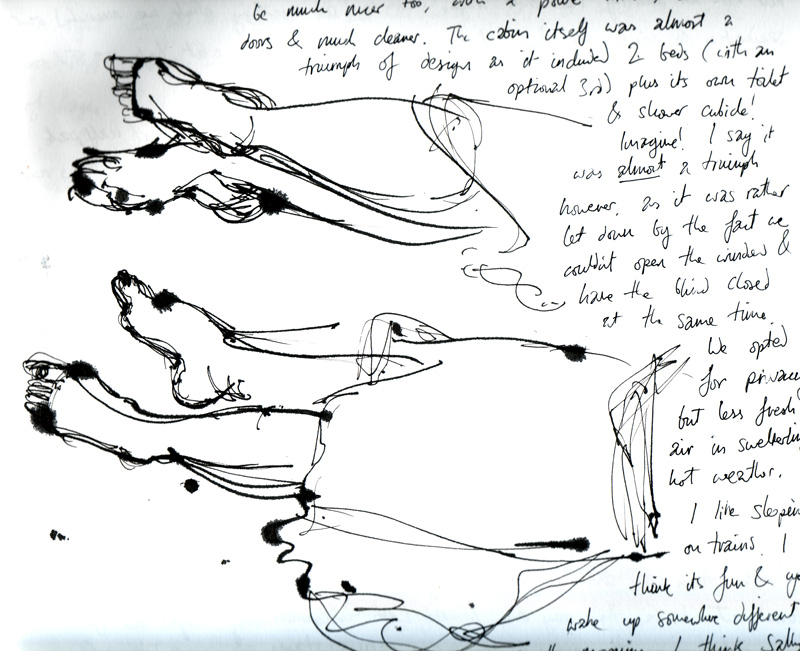 be much nicer too, with a power
doors & much cleaner. The cabin itself was almost a
triumph of design as it included 2 beds (with an
optional 3rd) plus its own toilet
& shower cubicle!
Imagine! I say it
was almost a triumph
however, as it was rather
let down by the fact we
couldn't open the window &
have the blind closed
at the same time.
We opted
for privacy
but less fresh
air in sweltering
hot weather.
I like sleeping
on trains. I
think its fun & you
wake up somewhere different
I think Sally